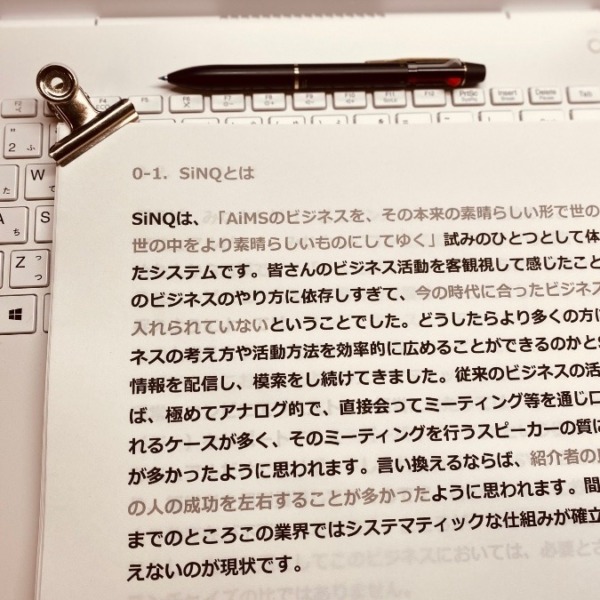 0-1. SiNQとは
SiNQは、「AiMSのビジネスを、その本来の素晴らしい形で世の
世の中をより素晴らしいものにしてゆく」試みのひとつとして体
たシステムです。皆さんのビジネス活動を客観視して感じたこと
のビジネスのやり方に依存しすぎて、今の時代に合ったビジネス
入れられていないということでした。どうしたらより多くの方に
ネスの考え方や活動方法を効率的に広めることができるのかと
情報を配信し、模索をし続けてきました。従来のビジネスの活
ば、極めてアナログ的で、直接会ってミーティング等を通じ口
れるケースが多く、そのミーティングを行うスピーカーの質に
が多かったように思われます。言い換えるならば、紹介者の
の人の成功を左右することが多かったように思われます。間
までのところこの業界ではシステマティックな仕組みが確立
えないのが現状です。